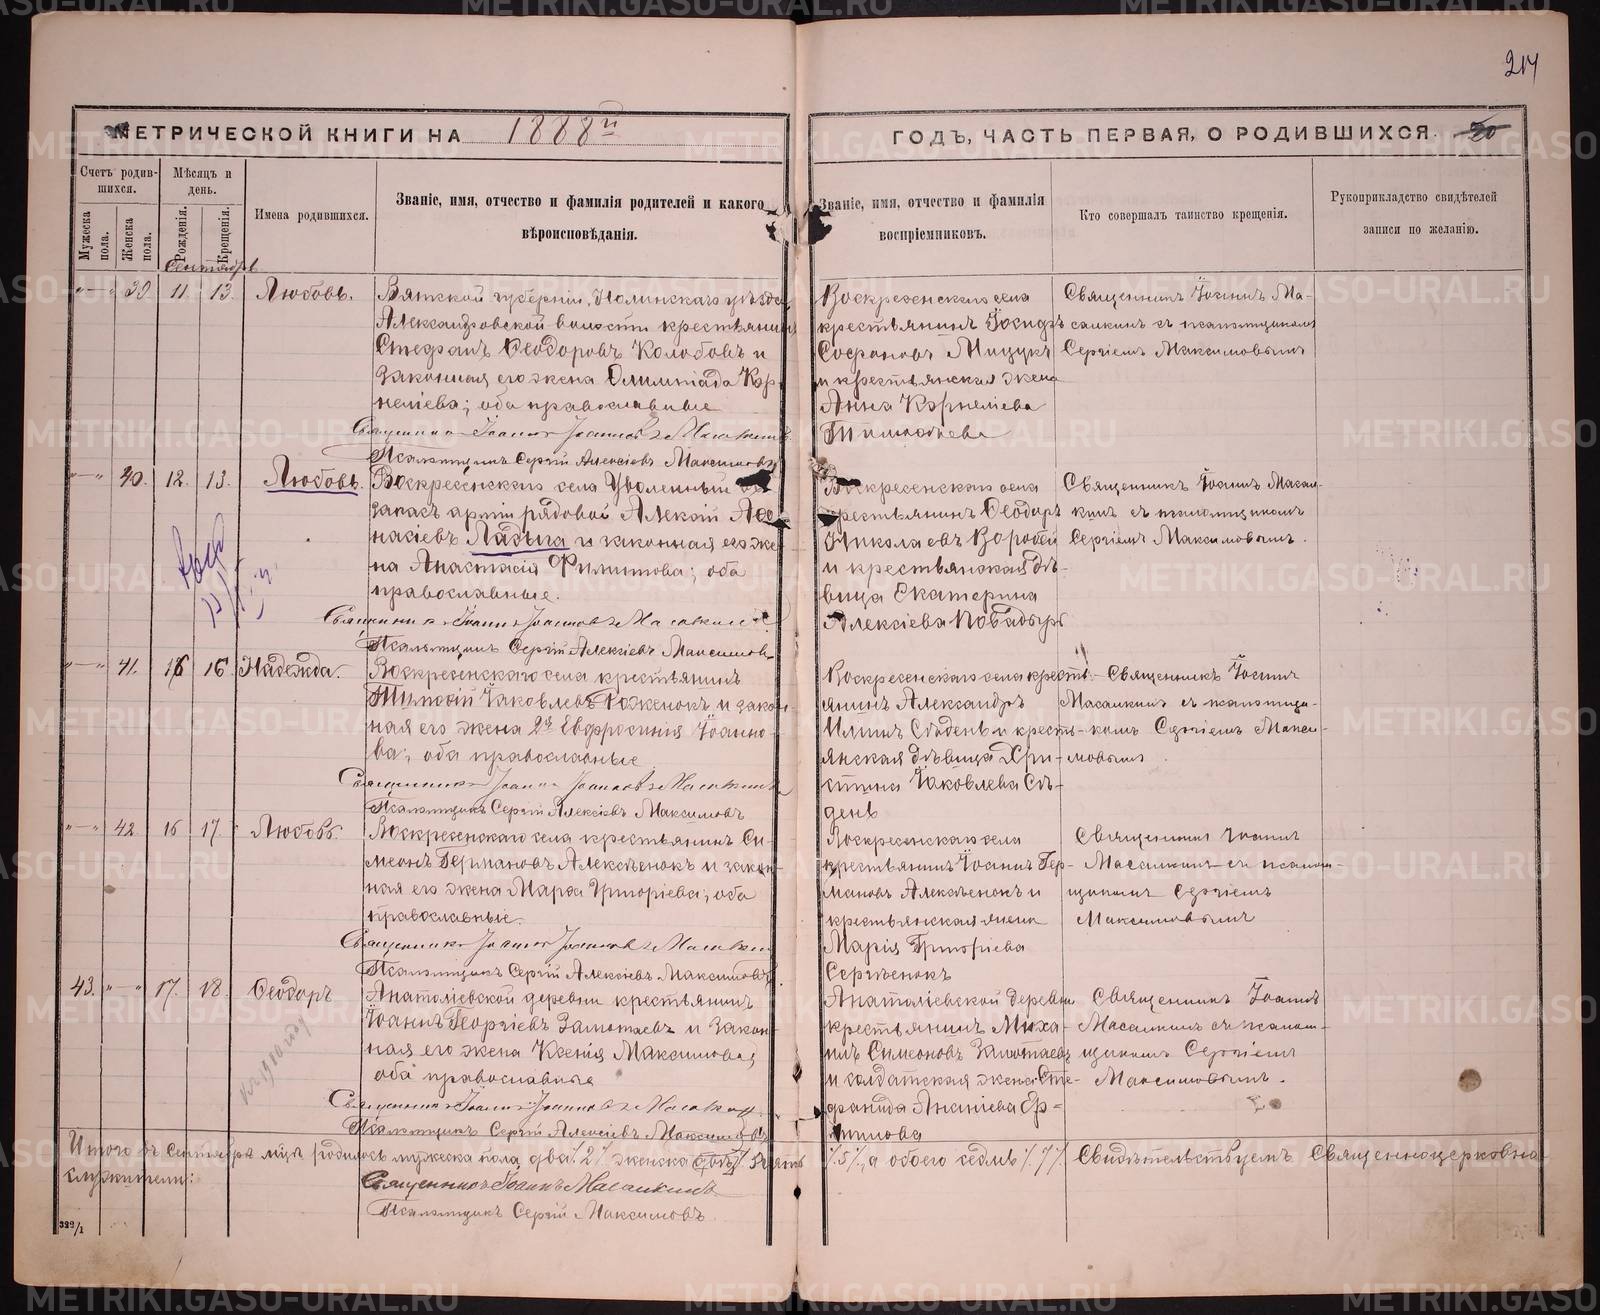 217
МЕТРИЧЕСКОЙ КНИГИ НА 1888й ГОДЪ, ЧАСТЬ ПЕРВАЯ, О РОДИВШИХСЯ.
Счетъ родив-
шихся.
Мѣсяцъ и
день.
Мужеска
пола.
Женска
пола.
Рожденія.
Крещенія.
Имена родившихся.
Званіе, имя, отчество и фамилія родителей и какого
вѣроисповѣданія.
Званіе, имя, отчество и фамилія
воспріемниковъ.
Кто совершалъ таинство крещенія.
Рукоприкладство свидѣтелей
записи по желанію.
Сентябрь
39. 11. 13. Любовь.
Вятской губерніи, Нолинскаго уѣзда
Александровской волости крестьянинъ
Стефанъ Ѳеодоровъ Колобовъ и
законная его жена Олимпіада Кор-
неліева; оба православные
Священникъ Іоаннъ Іоанновъ Масалкинъ
Псаломщикъ Сергій Алексіевъ Максимовъ
Воскресенскаго села
крестьянинъ
Софроновъ Мицукъ
и крестьянская жена
Анна Корнеліева
Священникъ Іоаннъ Ма-
салкинъ съ псаломщикомъ
Сергіемъ Максимовымъ
40. 12. 13. Любовь.
Воскресенскаго села уволенный въ
запасъ арміи рядовой Алексій Аѳа-
насіевъ Ладыга и законная его же-
на Анастасія Филипова; оба
православные.
Священникъ Іоаннъ Іоанновъ Масалкинъ
Псаломщикъ Сергій Алексіевъ Максимовъ
Воскресенскаго села
крестьянинъ Ѳеодоръ
Николаевъ Воробей
и крестьянская дѣ-
вица Екатерина
Алексіева
Священникъ Іоаннъ Масал-
кинъ съ псаломщикомъ
Сергіемъ Максимовымъ.
41. 16 16 Надежда.
Воскресенскаго села крестьянинъ
Тимоѳій Іаковлевъ Роженокъ и закон-
ная его жена Евфросинія Іоанно-
ва; оба православные
Священникъ Іоаннъ Іоанновъ Масалкинъ
Псаломщикъ Сергій Алексіевъ Максимовъ
Воскресенскаго села кресть-
янинъ Александръ
Ильинъ Сѣдень и кресть-
янская дѣвица Хри-
стина Іаковлева Сѣ-
день
Священникъ Іоаннъ
Масалкинъ съ псаломщи-
комъ Сергіемъ Макси-
мовымъ
42. 16 17. Любовь.
Воскресенскаго села крестьянинъ Си-
меонъ Германовъ Алексѣенокъ и закон-
ная его жена Марѳа Григоріева; оба
православные.
Священникъ Іоаннъ Іоанновъ Масалкинъ
Псаломщикъ Сергій Алексіевъ Максимовъ
Воскресенскаго села
крестьянинъ Іоаннъ Гер-
мановъ Алексѣенокъ и
крестьянская жена
Марія Григоріева
Сергѣенокъ
Священникъ Іоаннъ
Масалкинъ съ псалом-
щикомъ Сергіемъ
Максимовымъ
43. 17. 18. Ѳеодоръ
Анатоліевской деревни крестьянинъ
Іоаннъ Георгіевъ Замотаевъ и закон-
ная его жена Ксенія Максимова;
оба православные
Священникъ Іоаннъ Іоанновъ Масалкинъ
Псаломщикъ Сергій Алексіевъ Максимовъ
Анатоліевской деревни
крестьянинъ Миха-
илъ Симеоновъ Замотаевъ
и солдатская жена Сте-
фанида Ананіева Ер-
милова
Священникъ Іоаннъ
Масалкинъ съ псалом-
щикомъ Сергіемъ
Максимовымъ.
Итого въ Сентябрѣ мцѣ родилось мужеска пола два /2/ женска пять /5/, а обоего седмь /7/. Свидѣтельствуемъ Священноцерковно-
служители:
Священникъ Іоаннъ Масалкинъ
Псаломщикъ Сергій Максимовъ.
322/1
METRIKI.GASO-URAL.RU